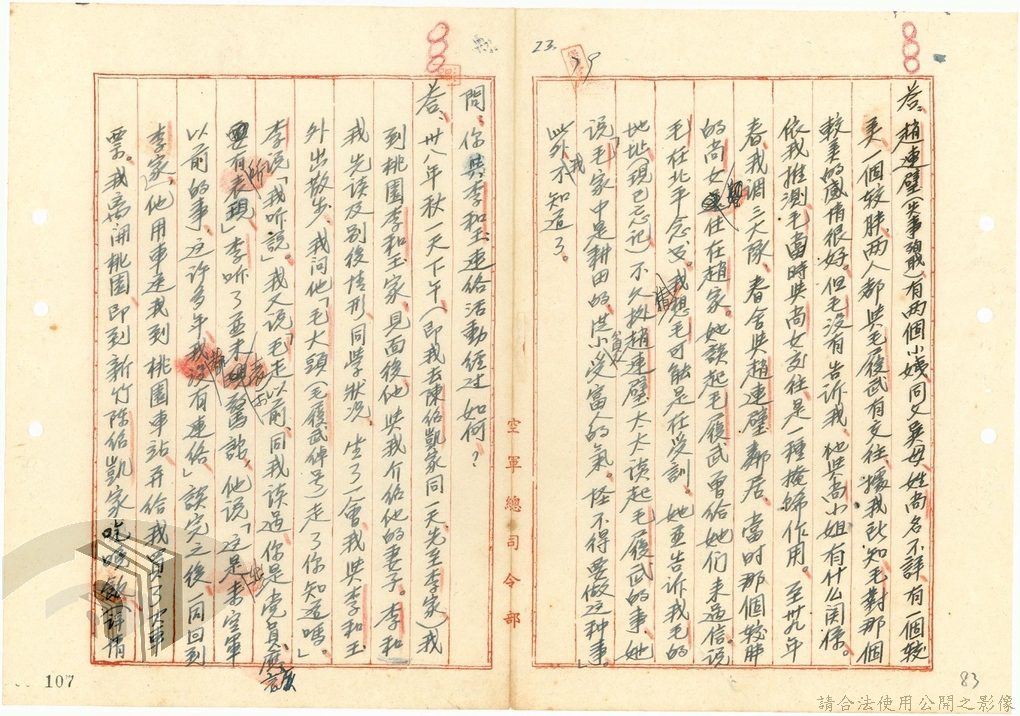 答、趙連璧失事殞職有兩個小姨同父異母姓尚名不詳有一個較
美一個較胖、兩人都與毛履武有交往、據我所知毛對那個
較美的感情很好。但毛沒有告訴我、他與尚小姐有什么関係。
依我推測毛當時與尚女交往是一種掩蔽作用。至卅九年
春我調三大隊、眷舍與趙連璧鄰居。當時那個較胖
的尚女住在趙家。她談起毛履武曾給她们来過信。說
毛在北平念書。我想毛可能是在受訓。她並告訴我毛的
地址(現已忘记)不久於趙連璧太太談起毛履武的事、她
說「毛家中是耕田的、從小受富人的氣。怪不得要做这种事。」
此外我不知道了。
問、你與李和玉連絡活動經过如何?
答、卅八年秋一天下午(即我去陳紹凱家同一天先至李家)我
到桃園李和玉家、見面後他與我介紹他的妻子。李和玉
我先谈及别後情形、同学狀况。坐了一會我與李和玉
外出散步、我问他「毛大頭(毛履武绰号)走了你知道嗎。」
李说「我听說」。我又说「毛走以前、同我谈過你是党員、應該
有所表現」李听了並未表示驚訝，他说「这是未来空軍
以前的事、这许多年我没有連絡」談完之後一同回到
李家、他用車送我到桃園車站并给我買了火車
票。我离開桃園即到新竹陈绍凱家
空軍總司令部
23.
107
83
請合法使用公開之影像